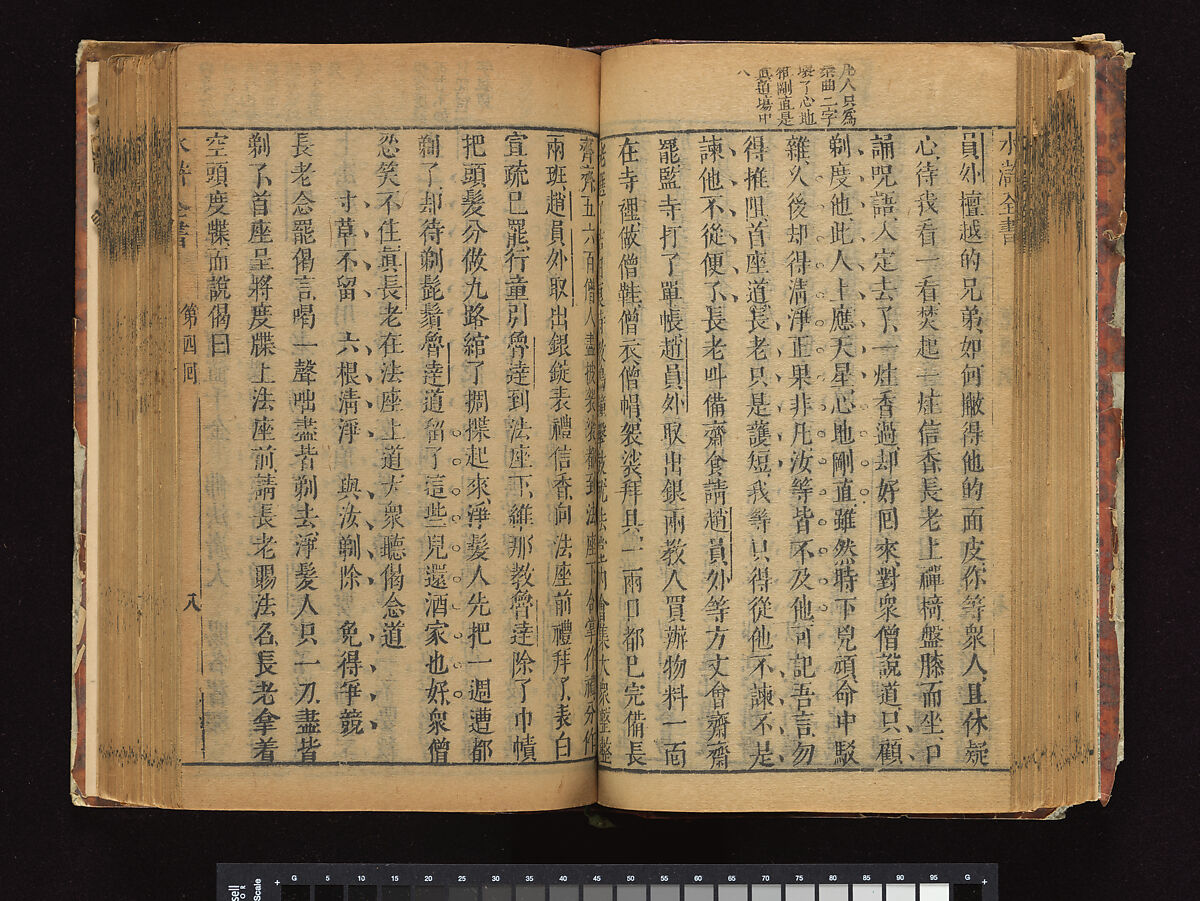 水滸全書
凡人只爲
曲二字
壞了心地
剛直是
道場中
人
員外檀越的兄弟、如何撇得他的面皮、你等衆人、且休疑
心、待我看一看、焚起一炷信香、長老上禪椅、盤膝而坐、口
誦呪語、入定去了、一炷香過、却好回來、對衆僧說道、只顧
剃度他、此人上應天星、心地剛直、雖然時下兇頑、命中駁
雜、久後却得清淨、正果非凡、汝等皆不及他、可記吾言、勿
得推阻、首座道、長老只是護短、我等只得從他、不諫不是、
諫他不從便了、長老叫備齋食、請趙員外等方丈會齋、齋
罷、監寺打了單帳、趙員外取出銀兩、教人買辦物料、一面
在寺裡做僧鞋、僧衣、僧帽、袈裟、拜具、一兩日都已完備、長
老選了吉日良時、教鳴鐘擊鼓、就法堂內會集大衆、整整
齊齊五六百僧人、盡披袈裟、都到法座下、合掌作禮、分作
兩班、趙員外取出銀錠、表禮、信香、向法座前禮拜了、表白
宣疏已罷、行童引魯達到法座下、維那教魯達除了巾幘、
把頭髮分做九路綰了、㨄揲起來、淨髮人先把一週遭都
剃了、却待剃髭鬚、魯達道、畱了這些兒還洒家也好、衆僧
忍笑不住、眞長老在法座上道、大衆聽偈、念道
寸草不留　六根清淨　與汝剃除　免得爭競
長老念罷偈言、喝一聲咄、盡皆剃去、淨髮人只一刀、盡皆
剃了、首座呈將度牒上法座前、請長老賜法名、長老拿着
空頭度牒而說偈曰
水滸全書　第四回　八